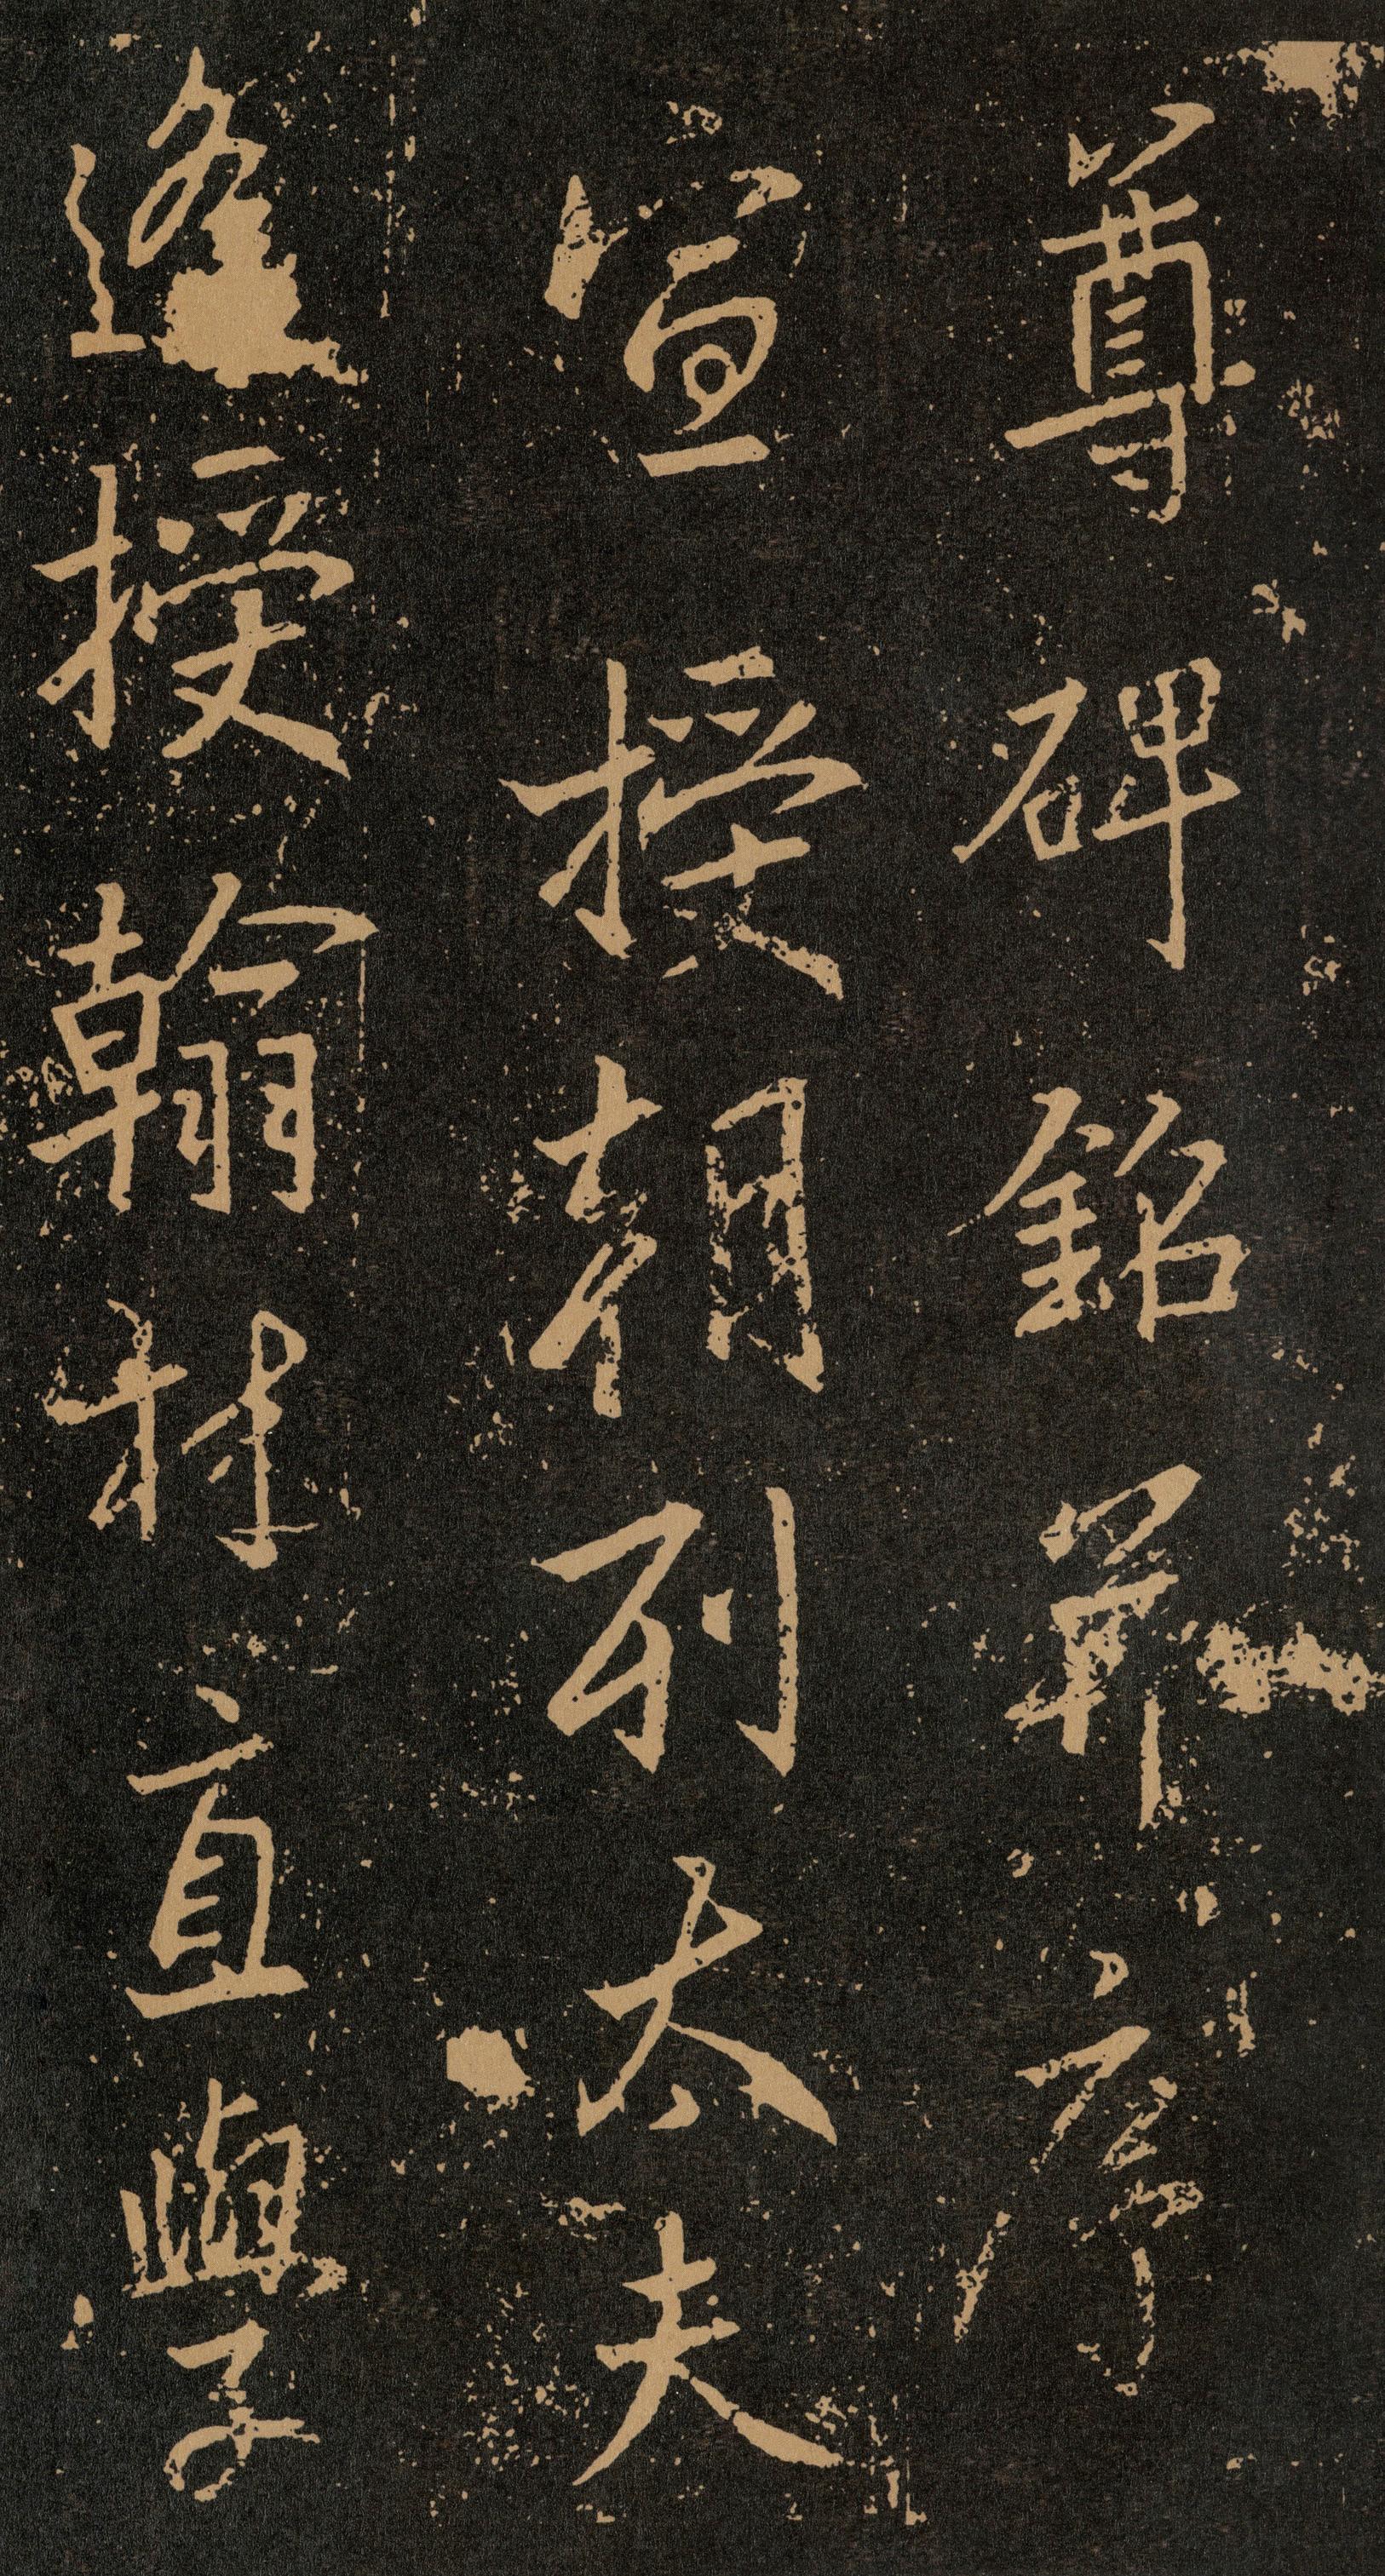 尊碑銘并序
宣授朝列太夫
遥授翰林直學